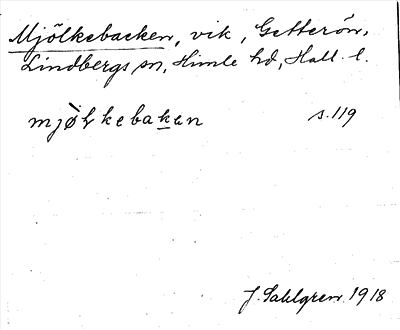 Mjölkebacken, vik, Getterön,
Lindbergs sn, Himle hd, Hall. l.
mjòlkebaken s. 119
J. Sahlgren 1918